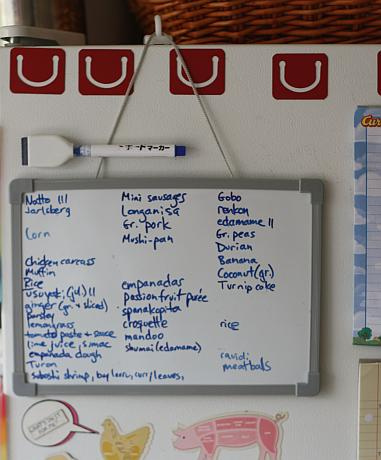 ボードマーカー
Natto III
Jarlsberg
Corn
Chicken carcass
Muffin
Rice
ginger (gr. + sliced)
parsley
lemongrass
tomato paste + sauce
lime juice, sumac
empanada dough
Turon
shrimp, bay leaves, curry leaves,
Mini sausages
Longanisa
Gr. pork
Mushi-pan
empanadas
passionfruit purée
spanakopita
croquette
mandoo
shumai (edamame)
Gobo
renkon
edamame II
Gr. peas
Durian
Banana
Coconut (gr.)
Turnip cake
rice
ravioli
meatballs